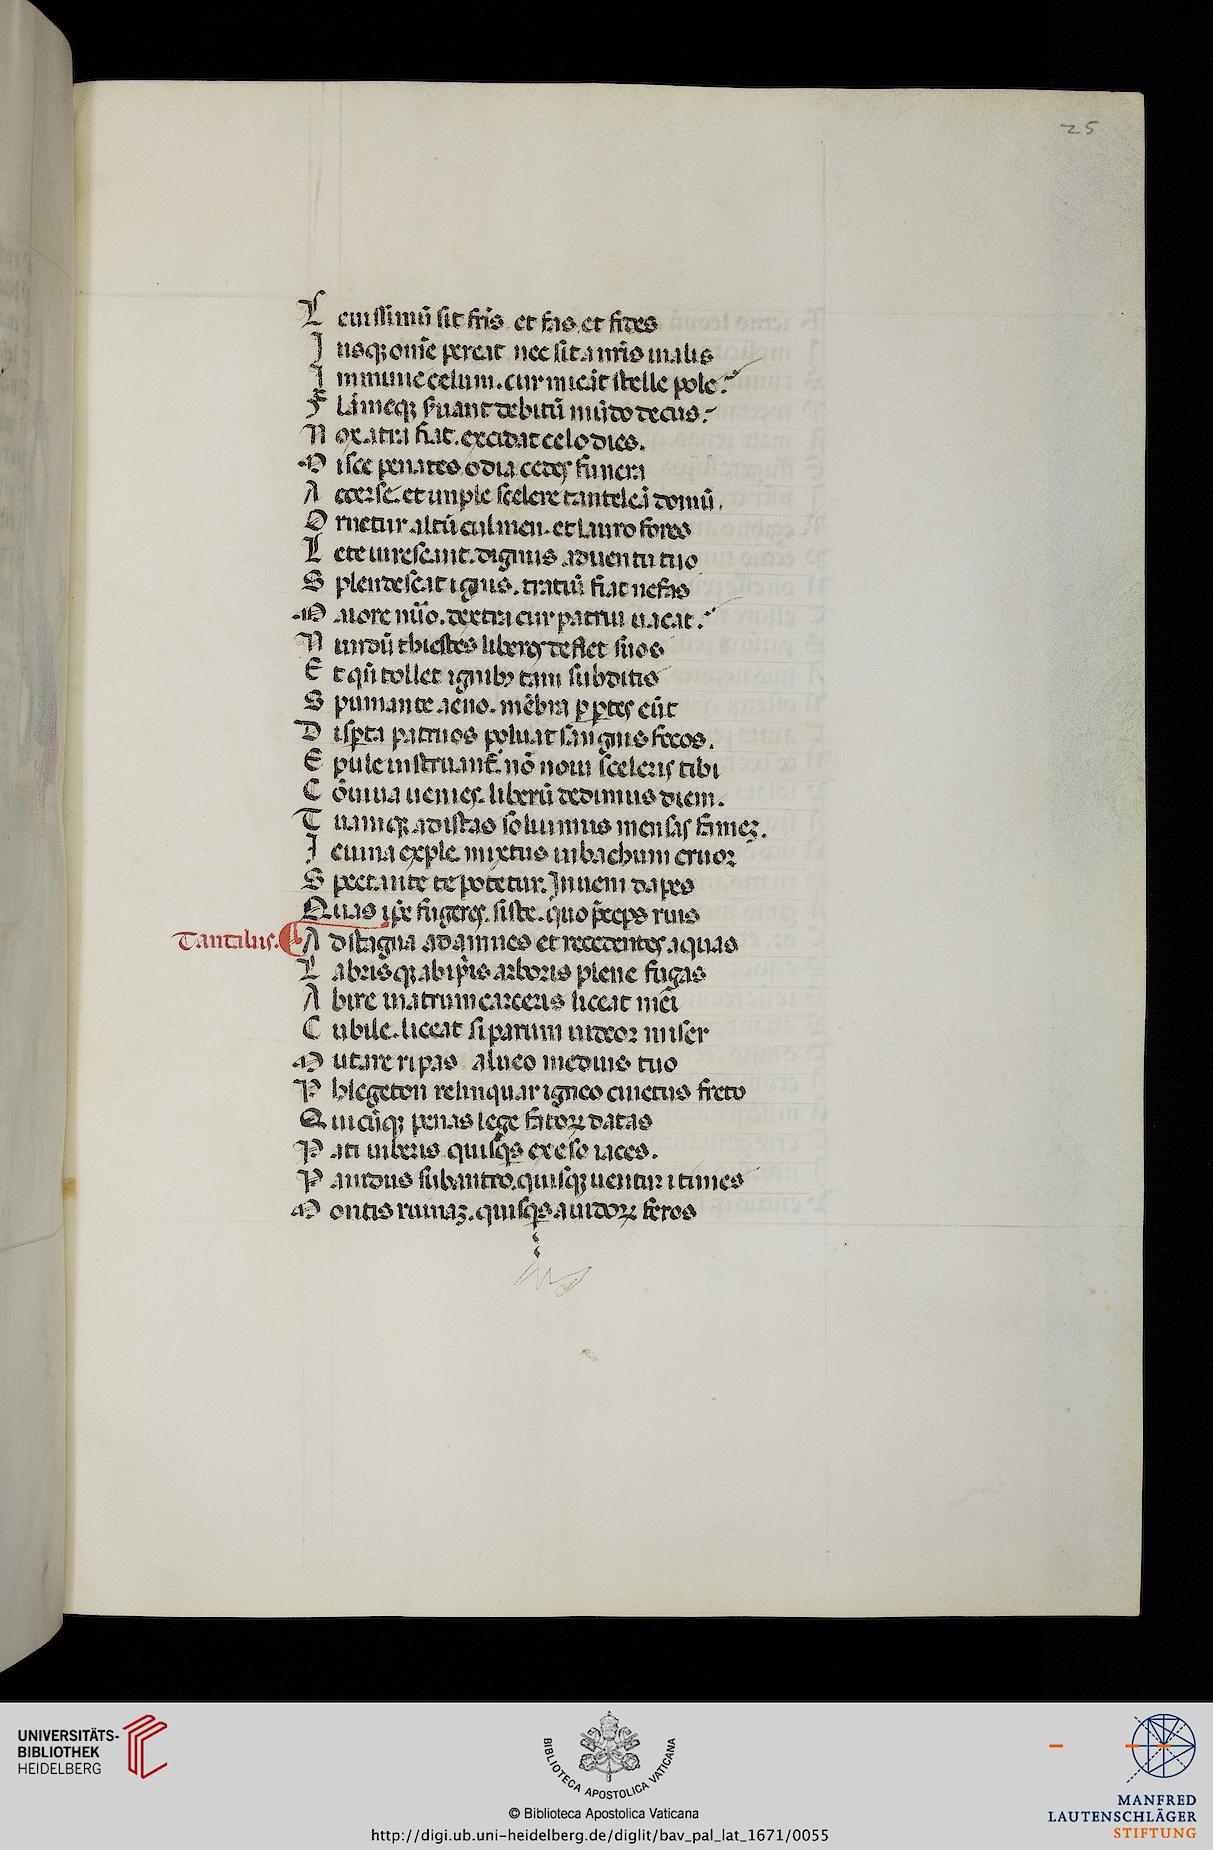 25
L euissimū sit fr̄is et fas et fides
J usqꝫ om̄e pereat nec sit a nr̄is malis
J mmune celum. cur micāt stelle polo
F lāmeqꝫ s̄uant debitū mūdo decus
N ox atra fiat. excidat celo dies.
M isce penates odia cedes funera
A ccerse. et imple scelere tanteleā domū.
O rnetur altū culmen. et lauro fores
L ete uirescant. dignus aduentu tuo
S plendescat ignis. traciū fiat nefas
M aiore nūo. dextra cur patrui uacat
N undū thiestes liberos deflet suos
E t qn̄ tollet ignibꝫ iam subditis
S pumante aeno. mēbra ꝑ ꝑtes eūt
D isꝑta patruos poluat sanguis focos.
E pule instruant᷑. nō noui sceleris tibi
C ōuiua uenies. liberū dedimus diem.
T uamqꝫ ad istas soluimus mensas famez.
I eiuna exple mixtus in bachum cruor
S pectante te potetur. Jnueni dapes
Q uas ip̄e fugeres. siste. quo p̄ceps ruis
Tantalus. A d stagna ad amnes et recedentes aquas
L abrisqꝫ ab ip̄is arboris plene fugas
A bire in atrum carceris liceat mei
C ubile. liceat si parum uideor miser
M utare ripas alueo medius tuo
P hlegeton relinquar igneo cinctus freto
Q uicūqꝫ penas lege fatoꝝ datas
P ati iuberis quisqs exeso iaces.
P auidus sub antro. quisqꝫ uenturi times
M ontis ruinaz. quisqs auidoꝝ feros
UNIVERSITÄTS-
BIBLIOTHEK
HEIDELBERG
BIBLIOTECA APOSTOLICA VATICANA
© Biblioteca Apostolica Vaticana
http://digi.ub.uni-heidelberg.de/diglit/bav_pal_lat_1671/0055
MANFRED
LAUTENSCHLÄGER
STIFTUNG